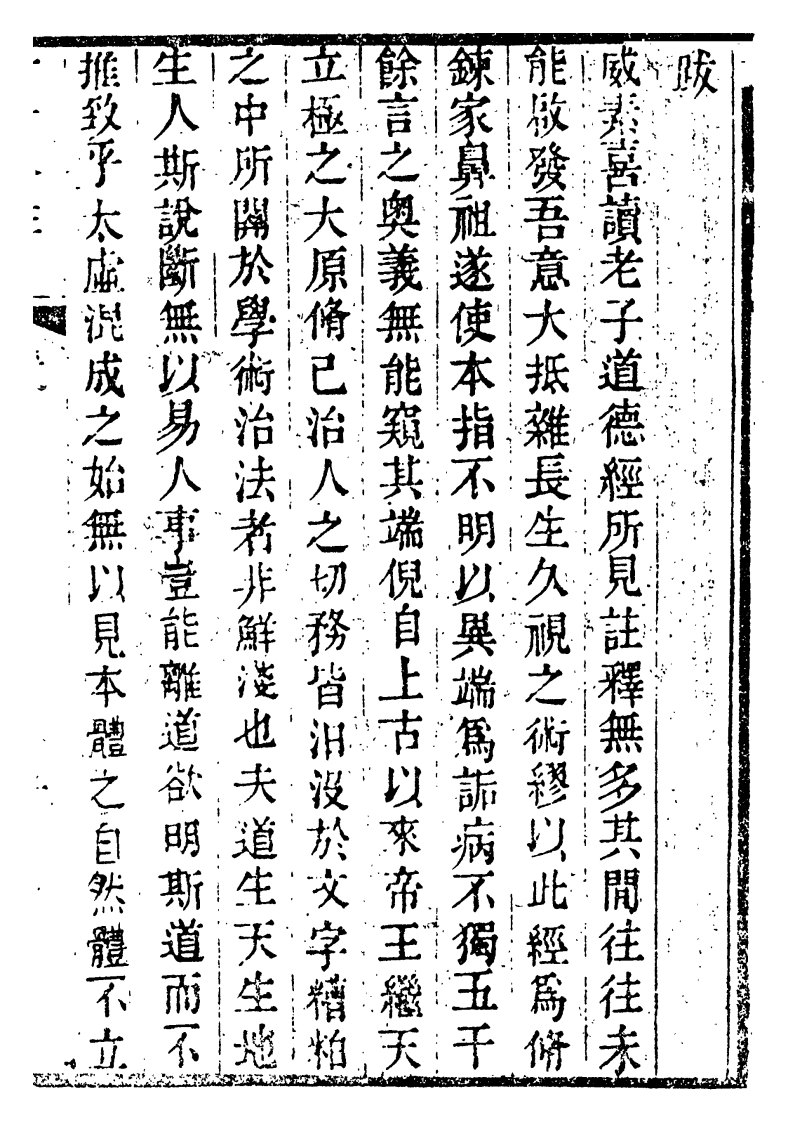 跋
威素喜讀老子道德經所見註釋無多其閒往往未
能啟發吾意大抵雜長生久視之術繆以此經爲脩
鍊家鼻祖遂使本指不明以異端爲詬病不獨五千
餘言之奥義無能窺其端倪自上古以來帝王繼天
立極之大原脩己治人之切務皆汨没於文字糟粕
之中所關於學術治法者非鮮淺也夫道生天生地
生人斯說斷無以易人事豈能離道欲明斯道而不
推致乎太虛混成之始無以見本體之自然體不立